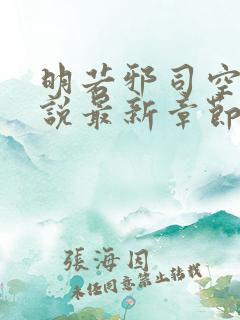 明若邪司空
說最新章節
張海因
未经同意禁止转载